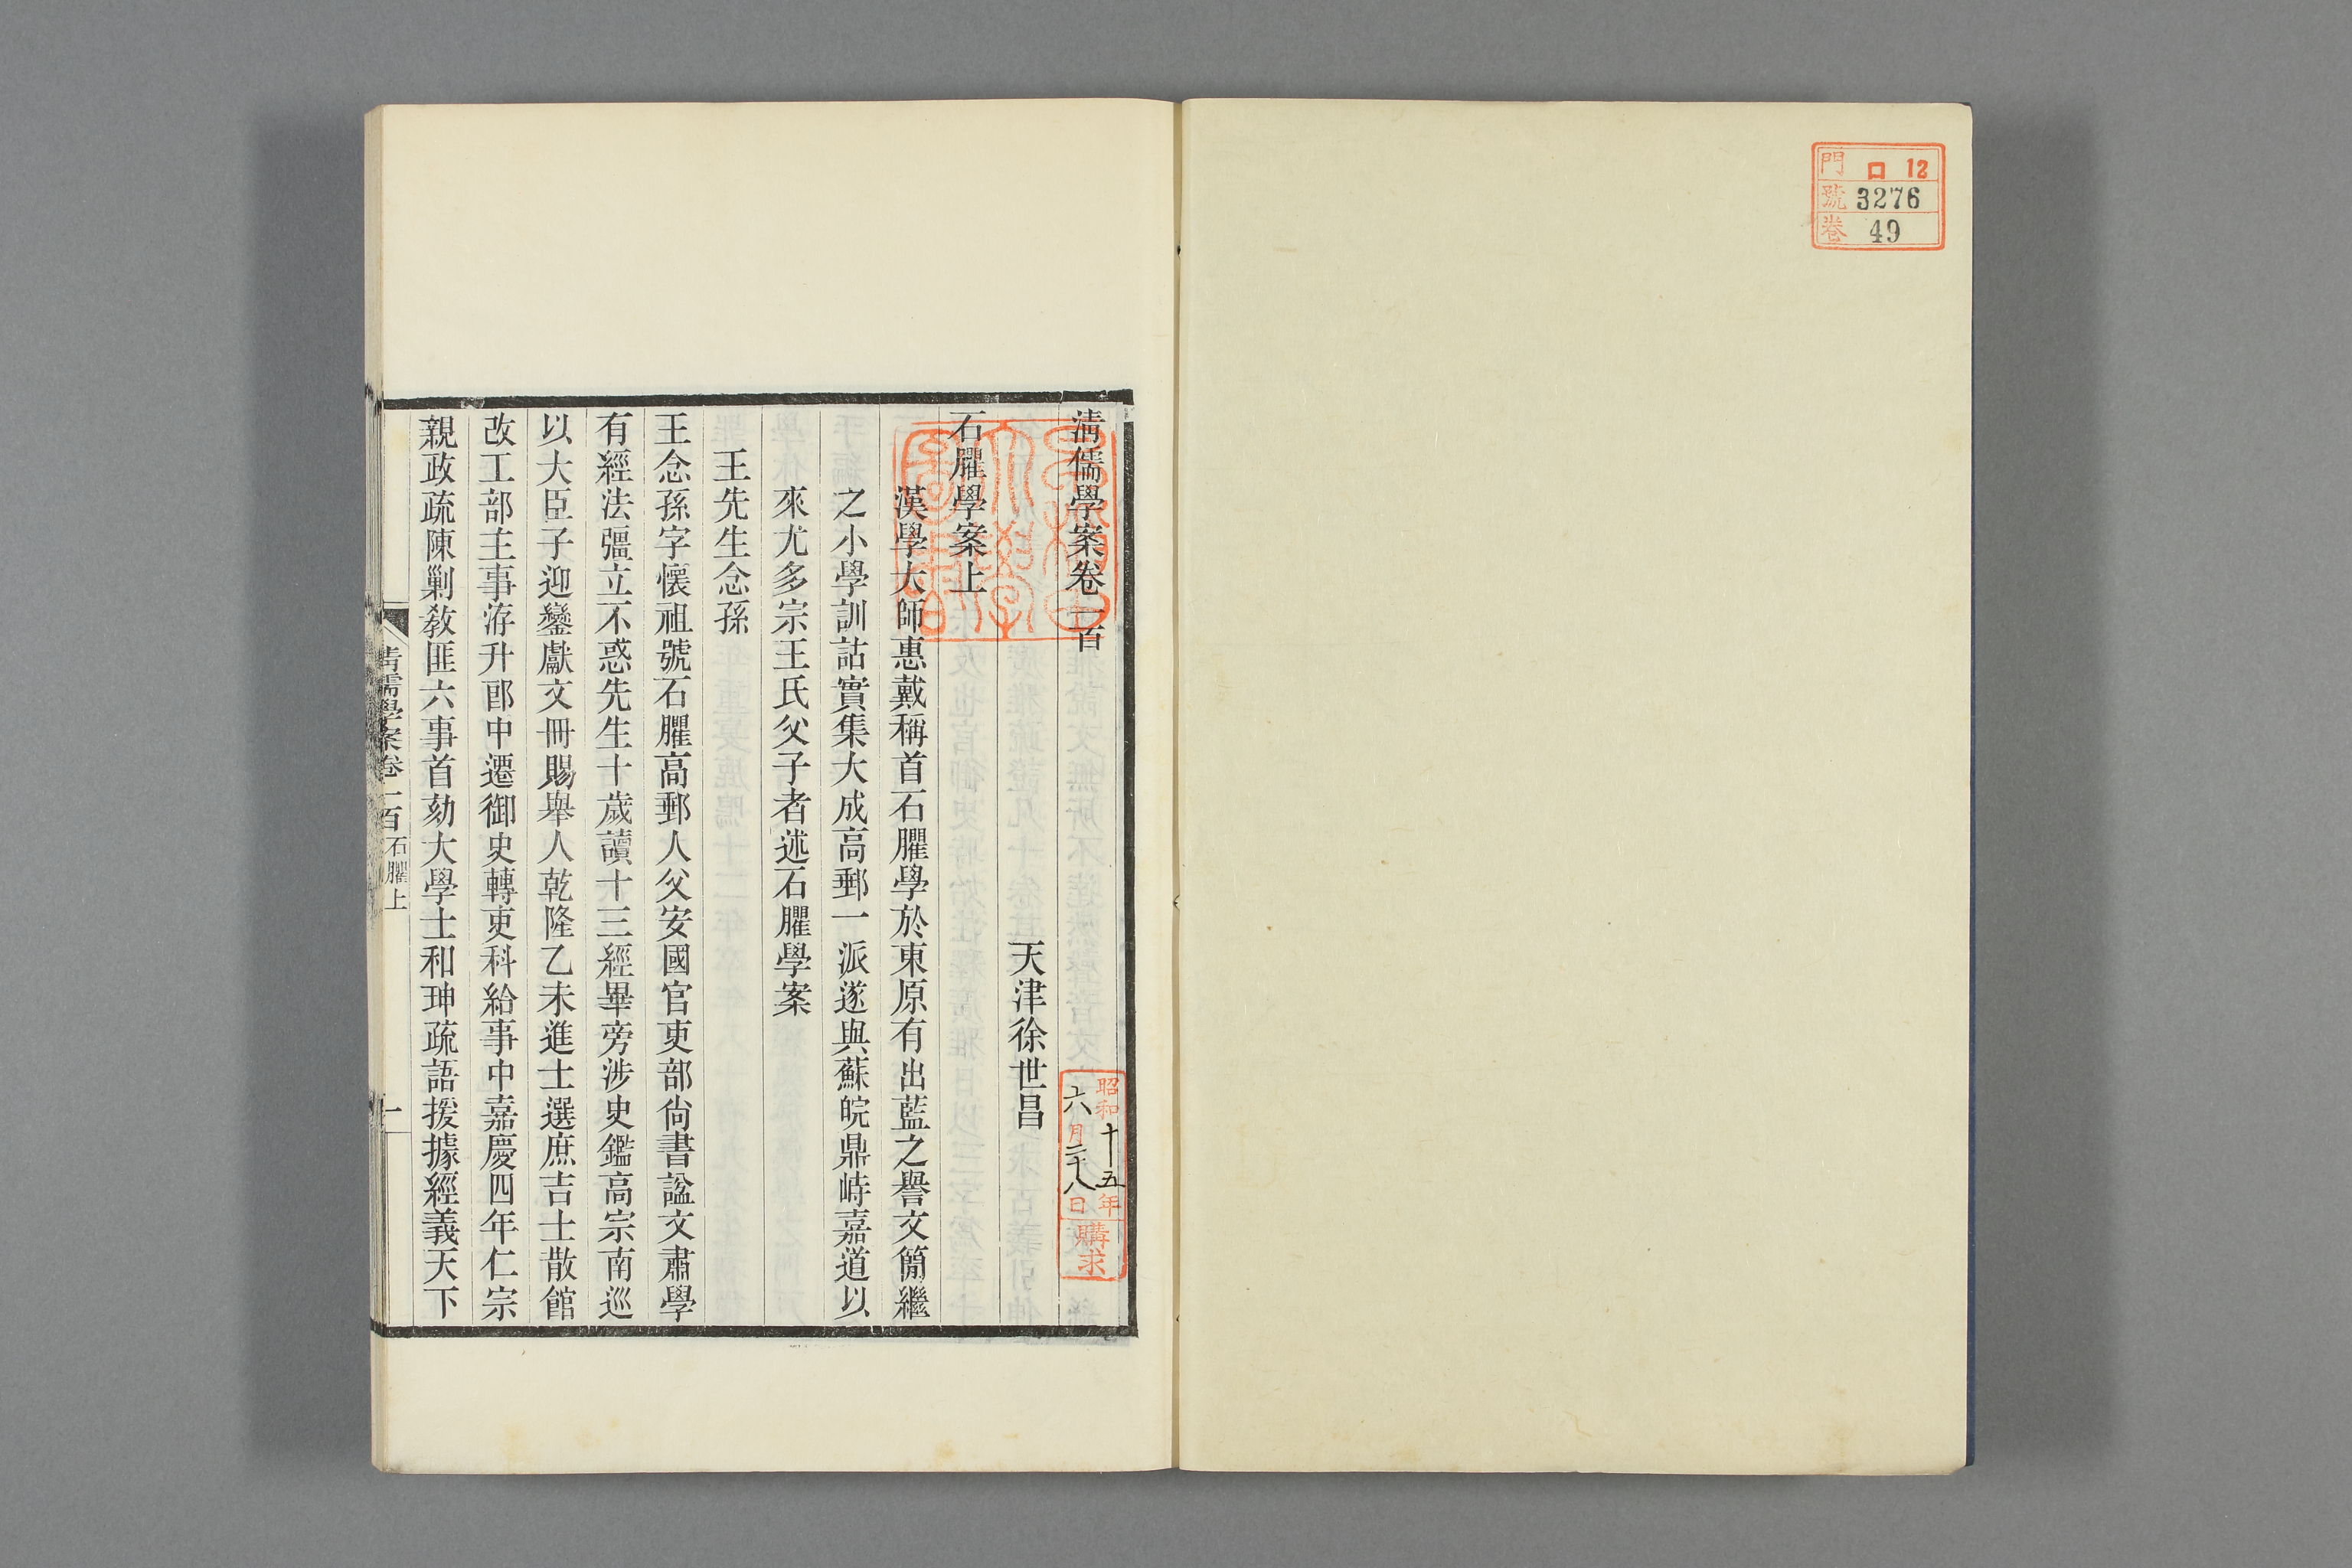 門 口 12
號 3276
卷 49
清儒學案卷一百
天津徐世昌
石臞學案上
漢學大師惠戴稱首石臞學於東原有出藍之譽文簡繼
之小學訓詁實集大成高郵一派遂與蘇皖鼎峙嘉道以
來尤多宗王氏父子者述石臞學案
王先生念孫
王念孫字懷祖號石臞高郵人父安國官吏部尙書諡文肅學
有經法彊立不惑先生十歲讀十三經畢旁涉史鑑高宗南巡
以大臣子迎鑾獻文冊賜舉人乾隆乙未進士選庶吉士散館
改工部主事洊升郎中遷御史轉吏科給事中嘉慶四年仁宗
親政疏陳剿教匪六事首劾大學士和珅疏語援據經義天下
清儒學案卷一百 石臞上
一
昭和十五年
六月二十八日
購求